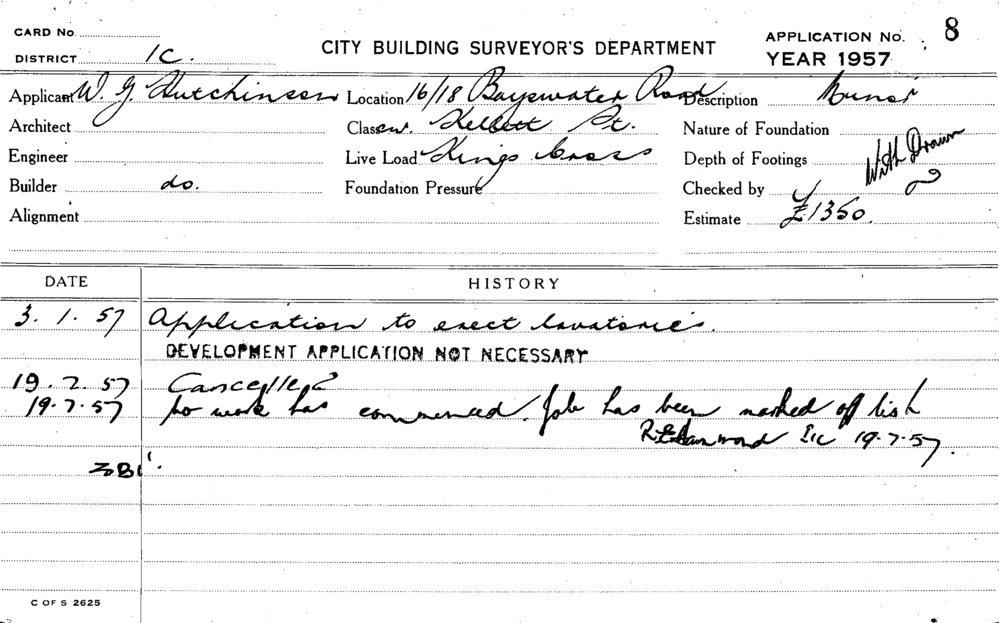 CARD No.
DISTRICT 1C.
CITY BUILDING SURVEYOR'S DEPARTMENT
APPLICATION No. 8
YEAR 1957
Applicant W. G. Hutchinson Location 16/18 Bayswater Road Description Minor
Architect Class cnr. Kellett St. Nature of Foundation
Engineer Live Load Kings Cross Depth of Footings
With Drawn
Builder do. Foundation Pressure Checked by
Alignment Estimate £1350.
DATE HISTORY
3. 1. 57 Application to erect lavatories.
DEVELOPMENT APPLICATION NOT NECESSARY
19. 2. 57 Cancelled
19.7.57 No work has commenced. Job has been marked off list
19.7.57.
C OF S 2625